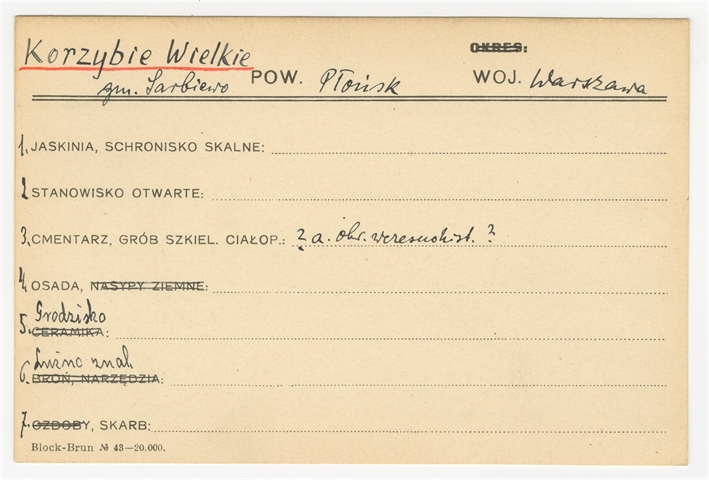 Korzybie Wielkie
OKRES:
gm. Sarbiewo POW. Płońsk WOJ. Warszawa
1. JASKINIA, SCHRONISKO SKALNE:
2 STANOWISKO OTWARTE:
3. CMENTARZ, GRÓB SZKIEL. CIAŁOP.: 2 a. okr. wczesnohist. ?
4. OSADA, NASYPY ZIEMNE:
Grodzisko
5. CERAMIKA:
Luźne znal.
6. BROŃ, NARZĘDZIA:
7. OZDOBY, SKARB:
Block-Brun № 43—20.000.